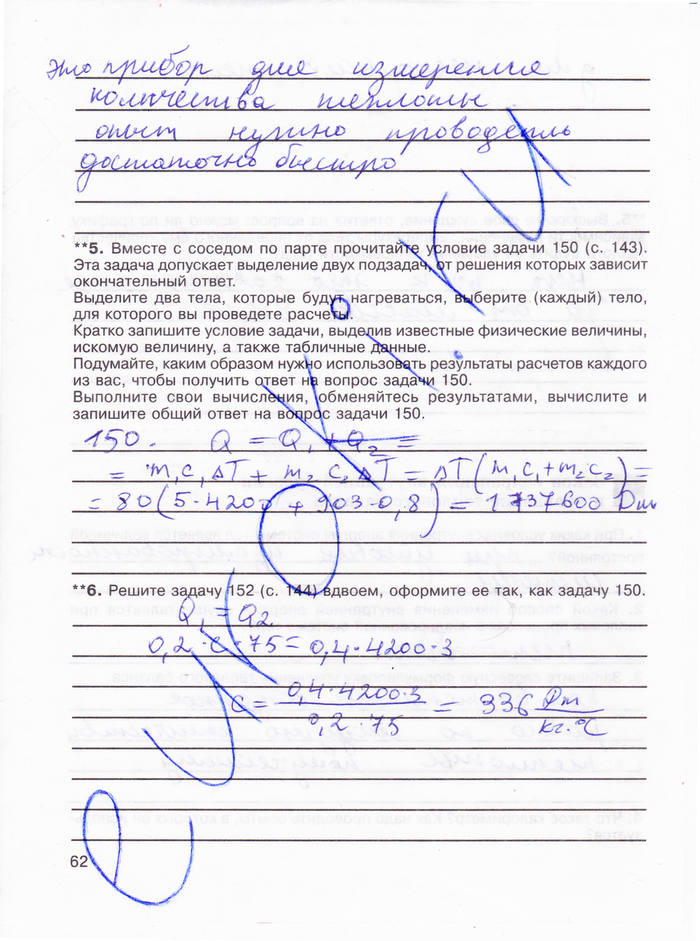 это прибор для измерения
количества теплоты.
опыт нужно проводить
достаточно быстро
**5. Вместе с соседом по парте прочитайте условие задачи 150 (с. 143).
Эта задача допускает выделение двух подзадач, от решения которых зависит
окончательный ответ.
Выделите два тела, которые будут нагреваться, выберите (каждый) тело,
для которого вы проведете расчеты.
Кратко запишите условие задачи, выделив известные физические величины,
искомую величину, а также табличные данные.
Подумайте, каким образом нужно использовать результаты расчетов каждого
из вас, чтобы получить ответ на вопрос задачи 150.
Выполните свои вычисления, обменяйтесь результатами, вычислите и
запишите общий ответ на вопрос задачи 150.
150. Q = Q₁ + Q₂ =
= m₁c₁ΔT + m₂c₂ΔT = ΔT(m₁c₁+m₂c₂) =
= 80(5·4200 + 903·0,8) = 1737600 Дж
**6. Решите задачу 152 (с. 144) вдвоем, оформите ее так, как задачу 150.
Q₁ = Q₂
0,2·c·75 = 0,4·4200·3
c = 0,4·4200·3 / 0,2·75 = 336 Дж/кг·°С
62